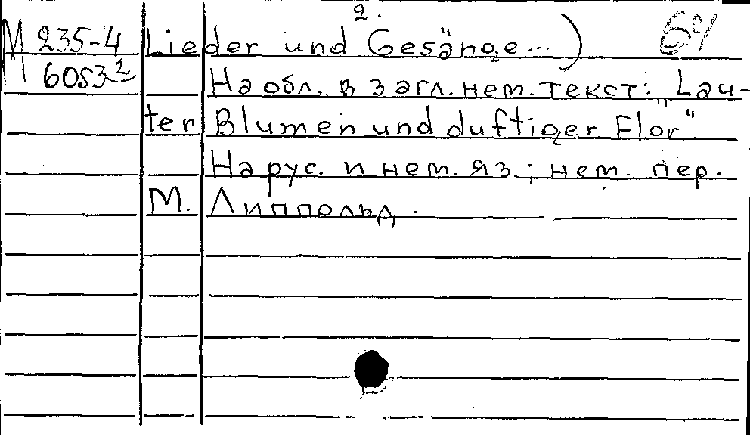 2.
М 235-4 Lieder und Gesänge...) 64
6053² На обл. в загл. нем. текст: "Lau-
ter Blumen und duftiger Flor"
На рус. и нем. яз.; нем. пер.
М. Липпольд.